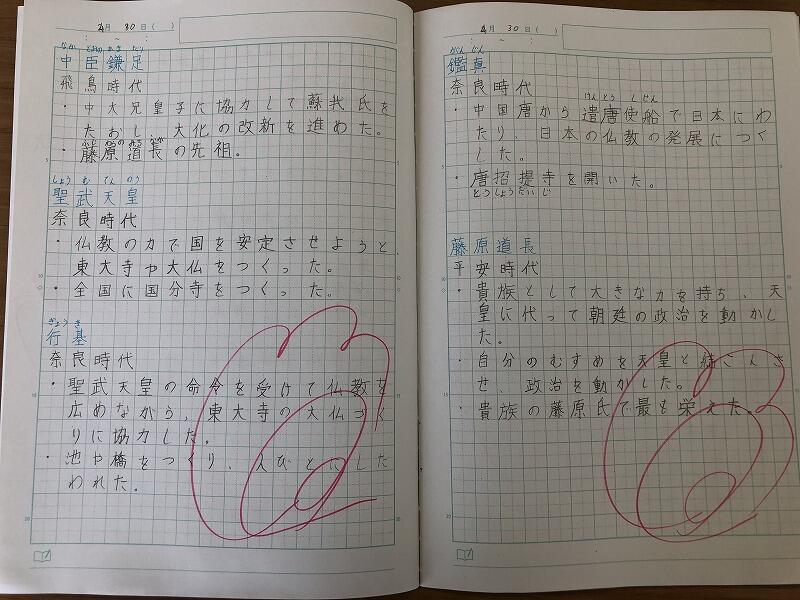 4月30日( )
なか とみの かま たり
中臣鎌足
飛鳥時代
・中大兄皇子に協力して蘇我氏を
たおし、大化の改新を進めた。
・藤原道長の先祖。
しょう む てん のう
聖武天皇
奈良時代
・仏教の力で国を安定させようと、
東大寺や大仏をつくった。
・全国に国分寺をつくった。
ぎょう き
行基
奈良時代
・聖武天皇の命令を受けて仏教を
広めながら、東大寺の大仏づく
りに協力した。
・池や橋をつくり、人びとにした
われた。
4月30日( )
がん じん
鑑真
奈良時代
けんとうしせん
・中国唐から遣唐使船で日本にわ
たり、日本の仏教の発展につく
した。
・唐招提寺を開いた。
とうしょうだいじ
藤原道長
平安時代
・貴族として大きな力を持ち、天
皇に代って朝廷の政治を動かし
た。
・自分のむすめを天皇と結こんさ
せ、政治を動かした。
・貴族の藤原氏で最も栄えた。